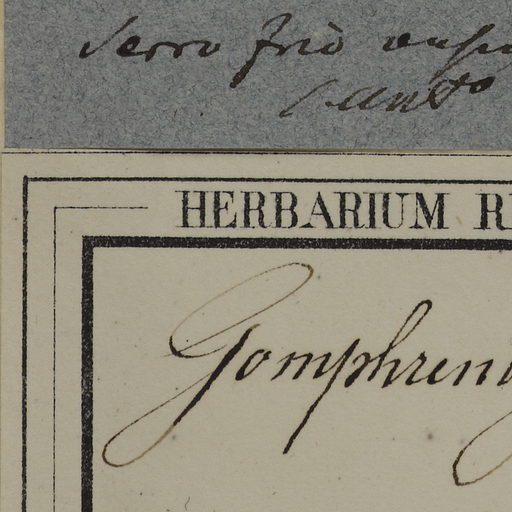 Serro frio
HERBARIUM R
Gomphren